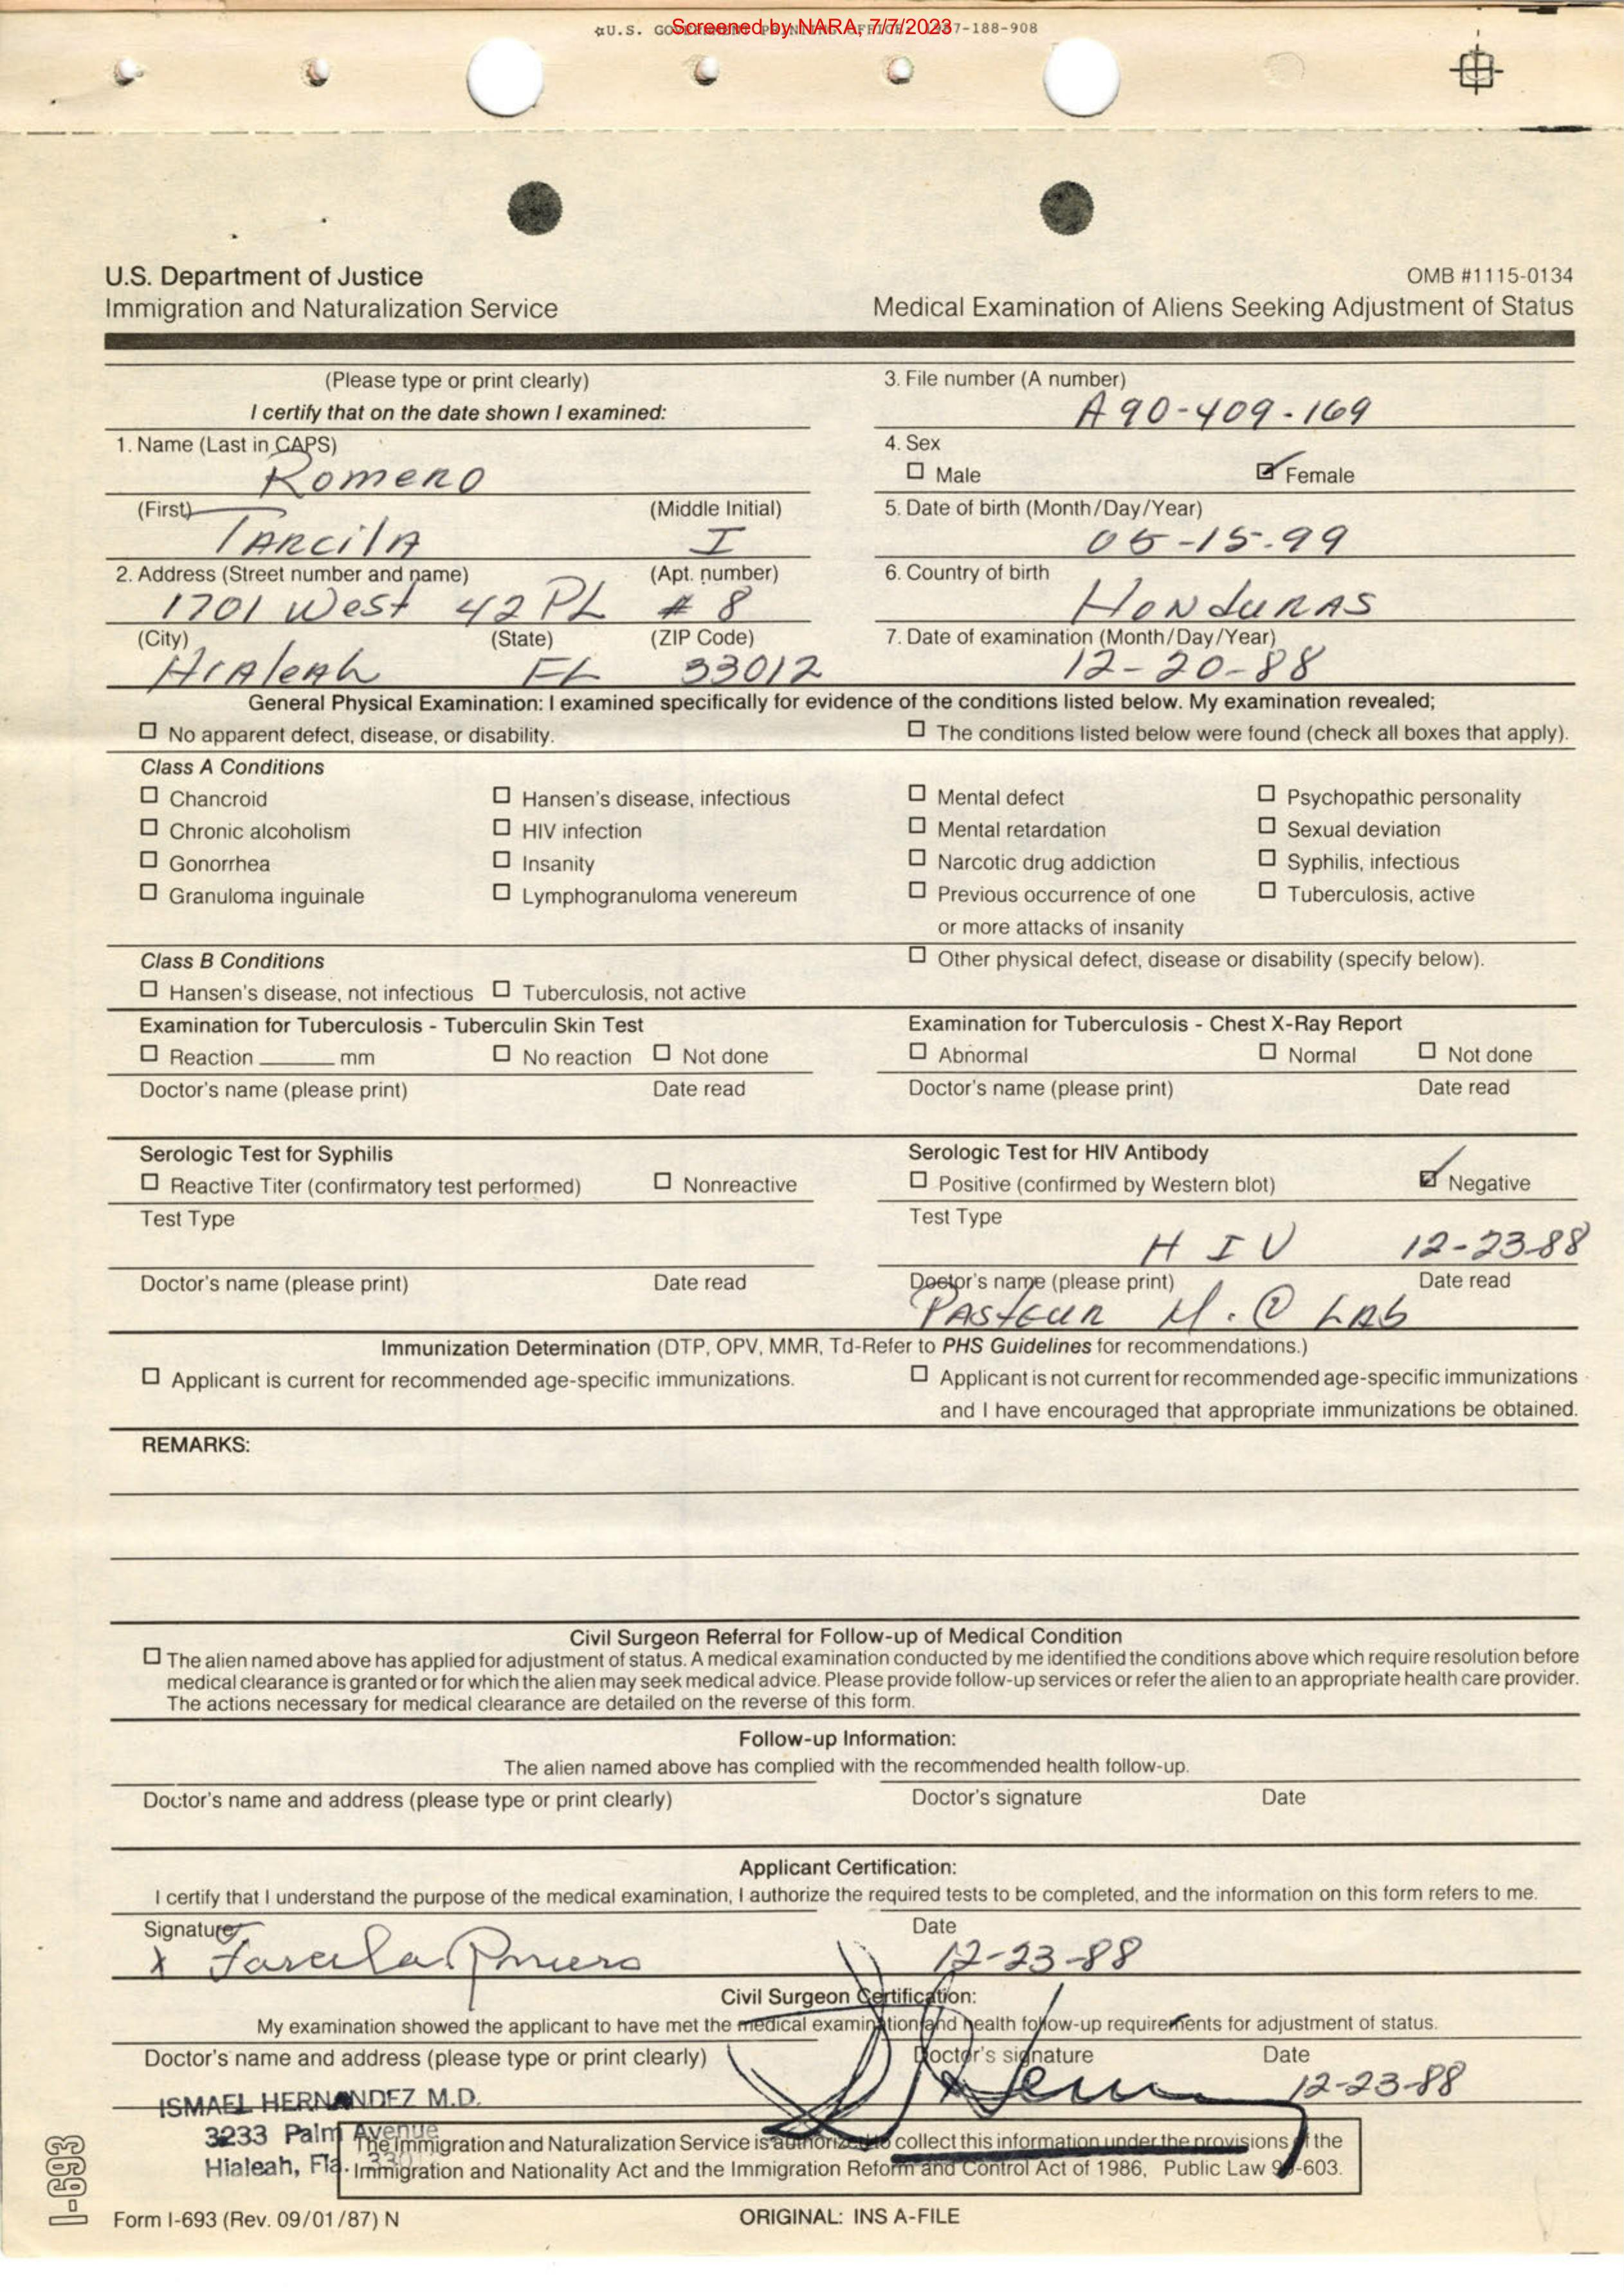 Screened by NARA, 7/7/2023
☆U.S. GOVERNMENT PRINTING OFFICE: 1987-188-908
U.S. Department of Justice
Immigration and Naturalization Service
OMB #1115-0134
Medical Examination of Aliens Seeking Adjustment of Status
(Please type or print clearly)
I certify that on the date shown I examined:
3. File number (A number)
A 90-409-169
1. Name (Last in CAPS)
Romero
4. Sex
☐ Male ☑ Female
(First) (Middle Initial)
TARCilA I
5. Date of birth (Month/Day/Year)
05-15-99
2. Address (Street number and name) (Apt. number)
1701 West 42 PL # 8
6. Country of birth
HONDURAS
(City) (State) (ZIP Code)
HiAleAh FL 33012
7. Date of examination (Month/Day/Year)
12-20-88
General Physical Examination: I examined specifically for evidence of the conditions listed below. My examination revealed;
☐ No apparent defect, disease, or disability. ☐ The conditions listed below were found (check all boxes that apply).
Class A Conditions
☐ Chancroid ☐ Hansen's disease, infectious ☐ Mental defect ☐ Psychopathic personality
☐ Chronic alcoholism ☐ HIV infection ☐ Mental retardation ☐ Sexual deviation
☐ Gonorrhea ☐ Insanity ☐ Narcotic drug addiction ☐ Syphilis, infectious
☐ Granuloma inguinale ☐ Lymphogranuloma venereum ☐ Previous occurrence of one ☐ Tuberculosis, active
or more attacks of insanity
Class B Conditions ☐ Other physical defect, disease or disability (specify below).
☐ Hansen's disease, not infectious ☐ Tuberculosis, not active
Examination for Tuberculosis - Tuberculin Skin Test
☐ Reaction ______ mm ☐ No reaction ☐ Not done
Doctor's name (please print) Date read
Examination for Tuberculosis - Chest X-Ray Report
☐ Abnormal ☐ Normal ☐ Not done
Doctor's name (please print) Date read
Serologic Test for Syphilis
☐ Reactive Titer (confirmatory test performed) ☐ Nonreactive
Test Type
Doctor's name (please print) Date read
Serologic Test for HIV Antibody
☐ Positive (confirmed by Western blot) ☑ Negative
Test Type
H I V 12-23-88
Doctor's name (please print) Date read
PASTEUR M. © LAb
Immunization Determination (DTP, OPV, MMR, Td-Refer to PHS Guidelines for recommendations.)
☐ Applicant is current for recommended age-specific immunizations. ☐ Applicant is not current for recommended age-specific immunizations
and I have encouraged that appropriate immunizations be obtained.
REMARKS:
Civil Surgeon Referral for Follow-up of Medical Condition
☐ The alien named above has applied for adjustment of status. A medical examination conducted by me identified the conditions above which require resolution before
medical clearance is granted or for which the alien may seek medical advice. Please provide follow-up services or refer the alien to an appropriate health care provider.
The actions necessary for medical clearance are detailed on the reverse of this form.
Follow-up Information:
The alien named above has complied with the recommended health follow-up.
Doctor's name and address (please type or print clearly) Doctor's signature Date
Applicant Certification:
I certify that I understand the purpose of the medical examination, I authorize the required tests to be completed, and the information on this form refers to me.
Signature Date
x Tarcila Romero 12-23-88
Civil Surgeon Certification:
My examination showed the applicant to have met the medical examination and health follow-up requirements for adjustment of status.
Doctor's name and address (please type or print clearly) Doctor's signature Date
12-23-88
ISMAEL HERNANDEZ M.D.
3233 Palm Avenue
Hialeah, Fla.
The Immigration and Naturalization Service is authorized to collect this information under the provisions of the
Immigration and Nationality Act and the Immigration Reform and Control Act of 1986, Public Law 99-603.
I-693
Form I-693 (Rev. 09/01/87) N
ORIGINAL: INS A-FILE